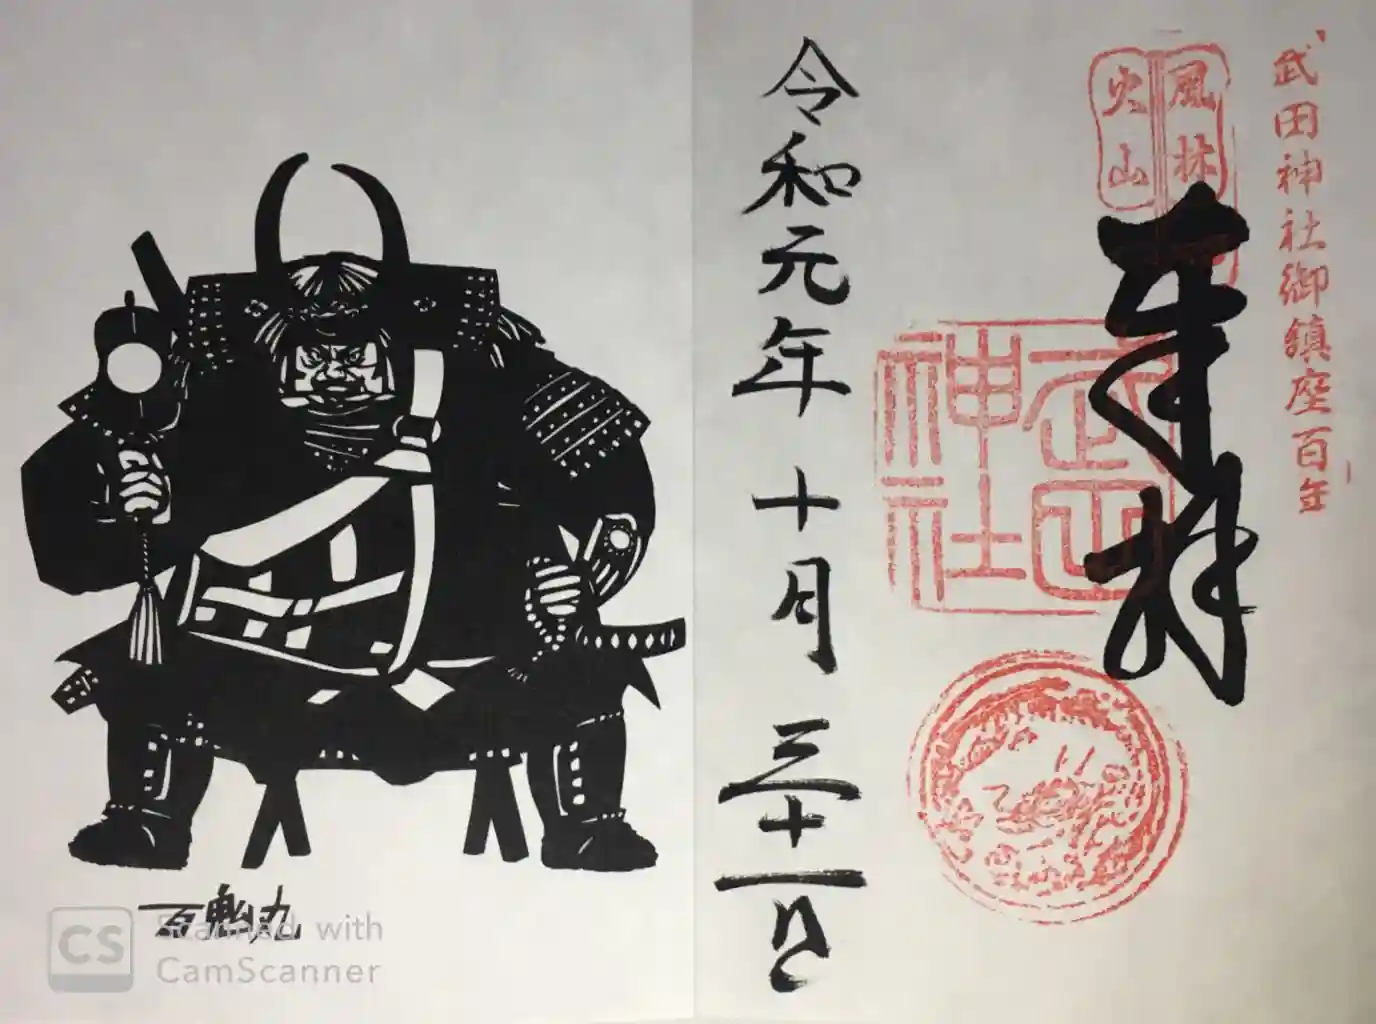 武田神社御鎮座百年
風林
火山
奉拝
武田
神社
令和元年十月三十一日
百鬼丸
CS Scanned with
CamScanner